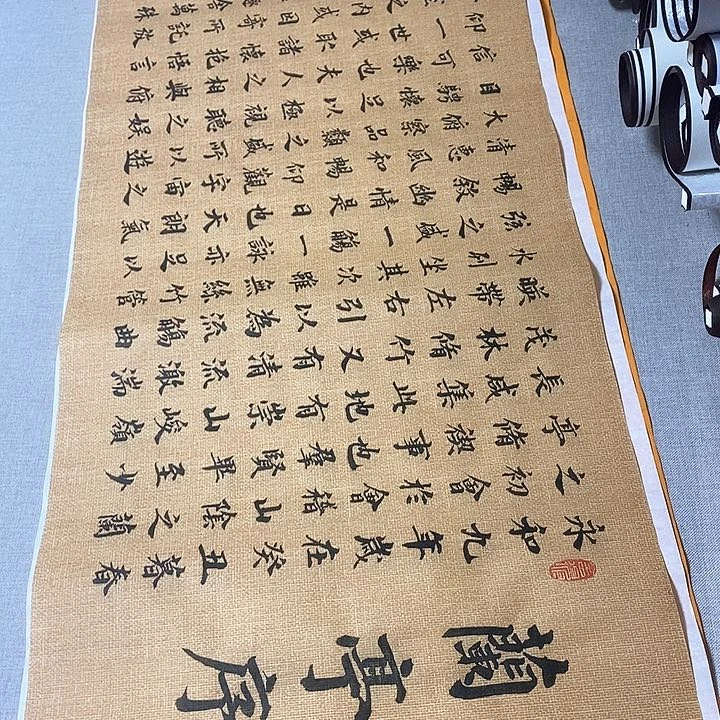 蘭亭序
永和九年歲在癸丑暮春
之初會於會稽山陰之蘭
亭脩禊事也羣賢畢至少
長咸集此地有崇山峻嶺
茂林脩竹又有清流激湍
暎帶左右引以為流觴曲
水列坐其次雖無絲竹管
弦之盛一觴一詠亦足以
暢敘幽情是日也天朗氣
清惠風和暢仰觀宇宙之
大俯察品類之盛所以遊
目騁懷足以極視聽之娛
信可樂也夫人之相與俯
仰一世或取諸懷抱悟言
之內或因寄所託放
萬殊